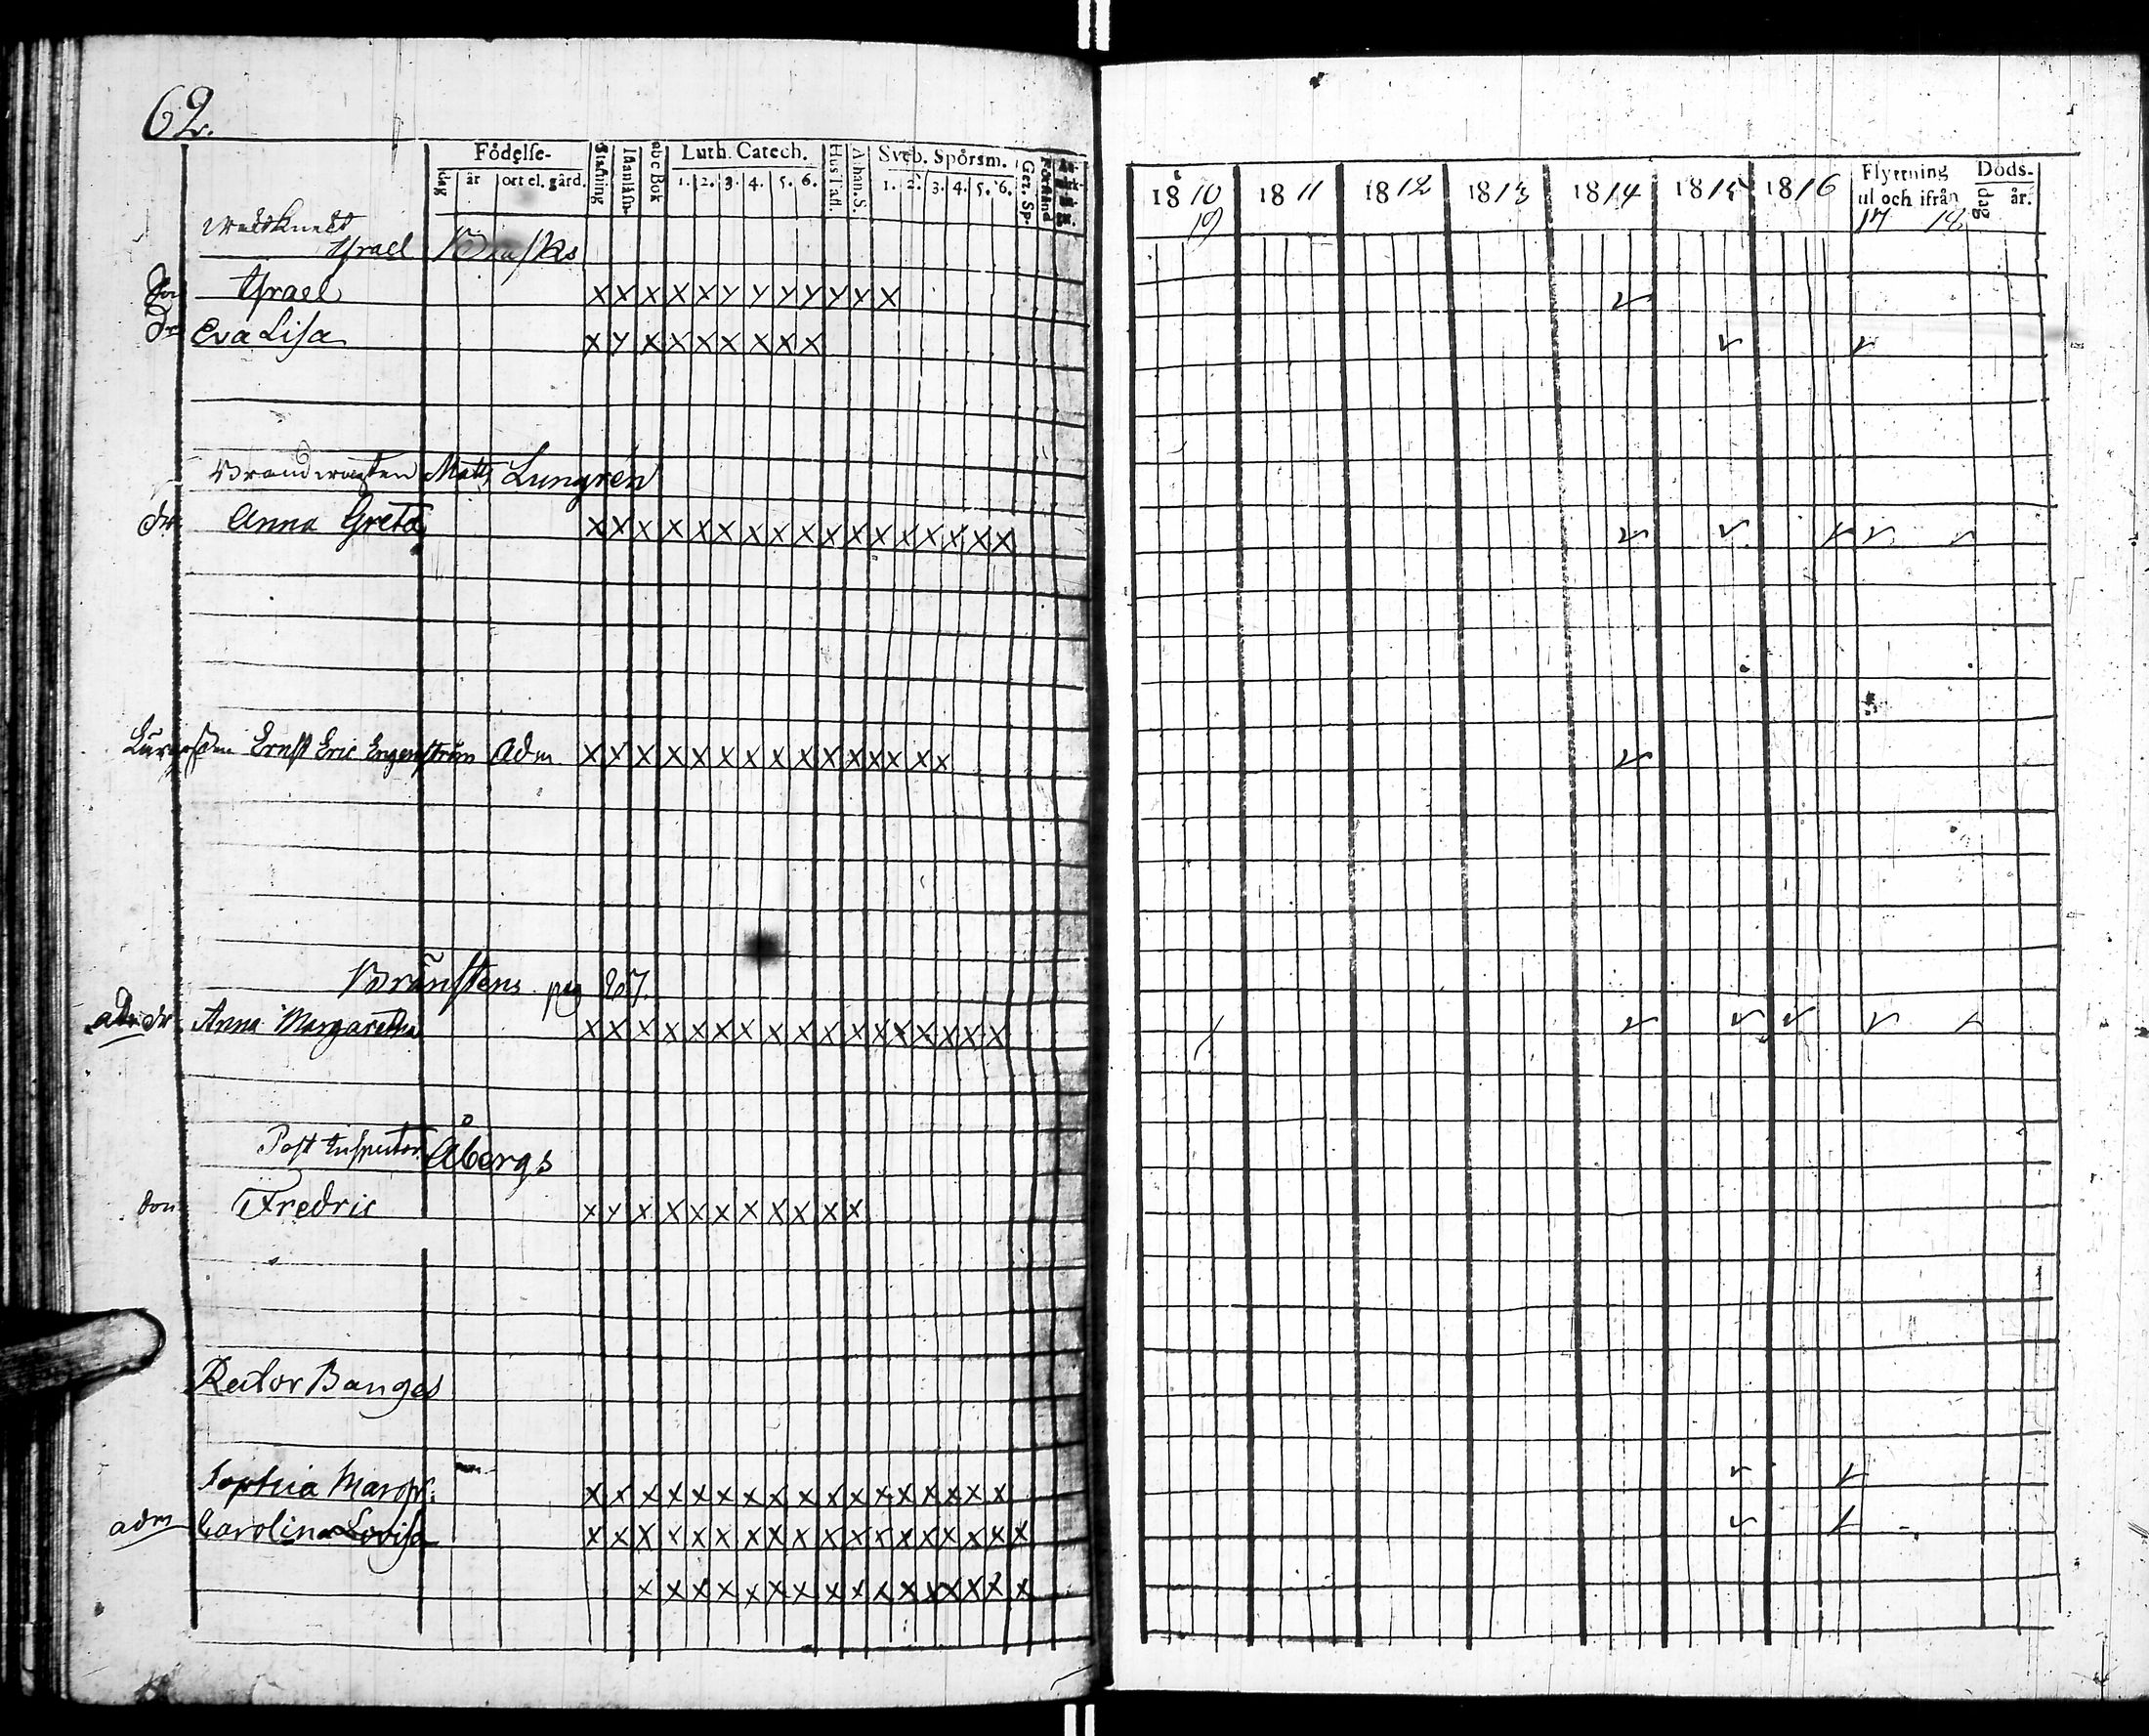 62.
Födelse-
dag år ort el. gård.
Stafning
Innanläsn.
abc Bok
Luth. Catech.
1. 2. 3. 4. 5. 6.
Hus Tafl.
Athan. S.
Sveb. Spörsm.
1. 2. 3. 4. 5. 6.
Ger. Sp.
Förstånd
1810 1811 1812 1813 1814 1815 1816
19
Flyttning
til och ifrån
17 18
Döds-
dag år.
Israel
Son Israel x x x x x y y y y y x x
Dr Eva Lisa x y x x x x x x x
Brandwagten Matts Lungrén
dr Anna Greta x x x x x x x x x x x x x x x x x
Ernst Eric Engerström adm x x x x x x x x x x x x x x x
Bränstens pag 267.
adm dr Anna Margaretha x x x x x x x x x x x x x x x x x
Post Inspector Åbergs
Son Fredric x y x x x x x x x x x
Rector Banges
Sophia Margr: x x x x x x x x x x x x x x x x x
adm Carolina Lovisa x x x x x x x x x x x x x x x x x x
x x x x x x x x x x x x x x x x